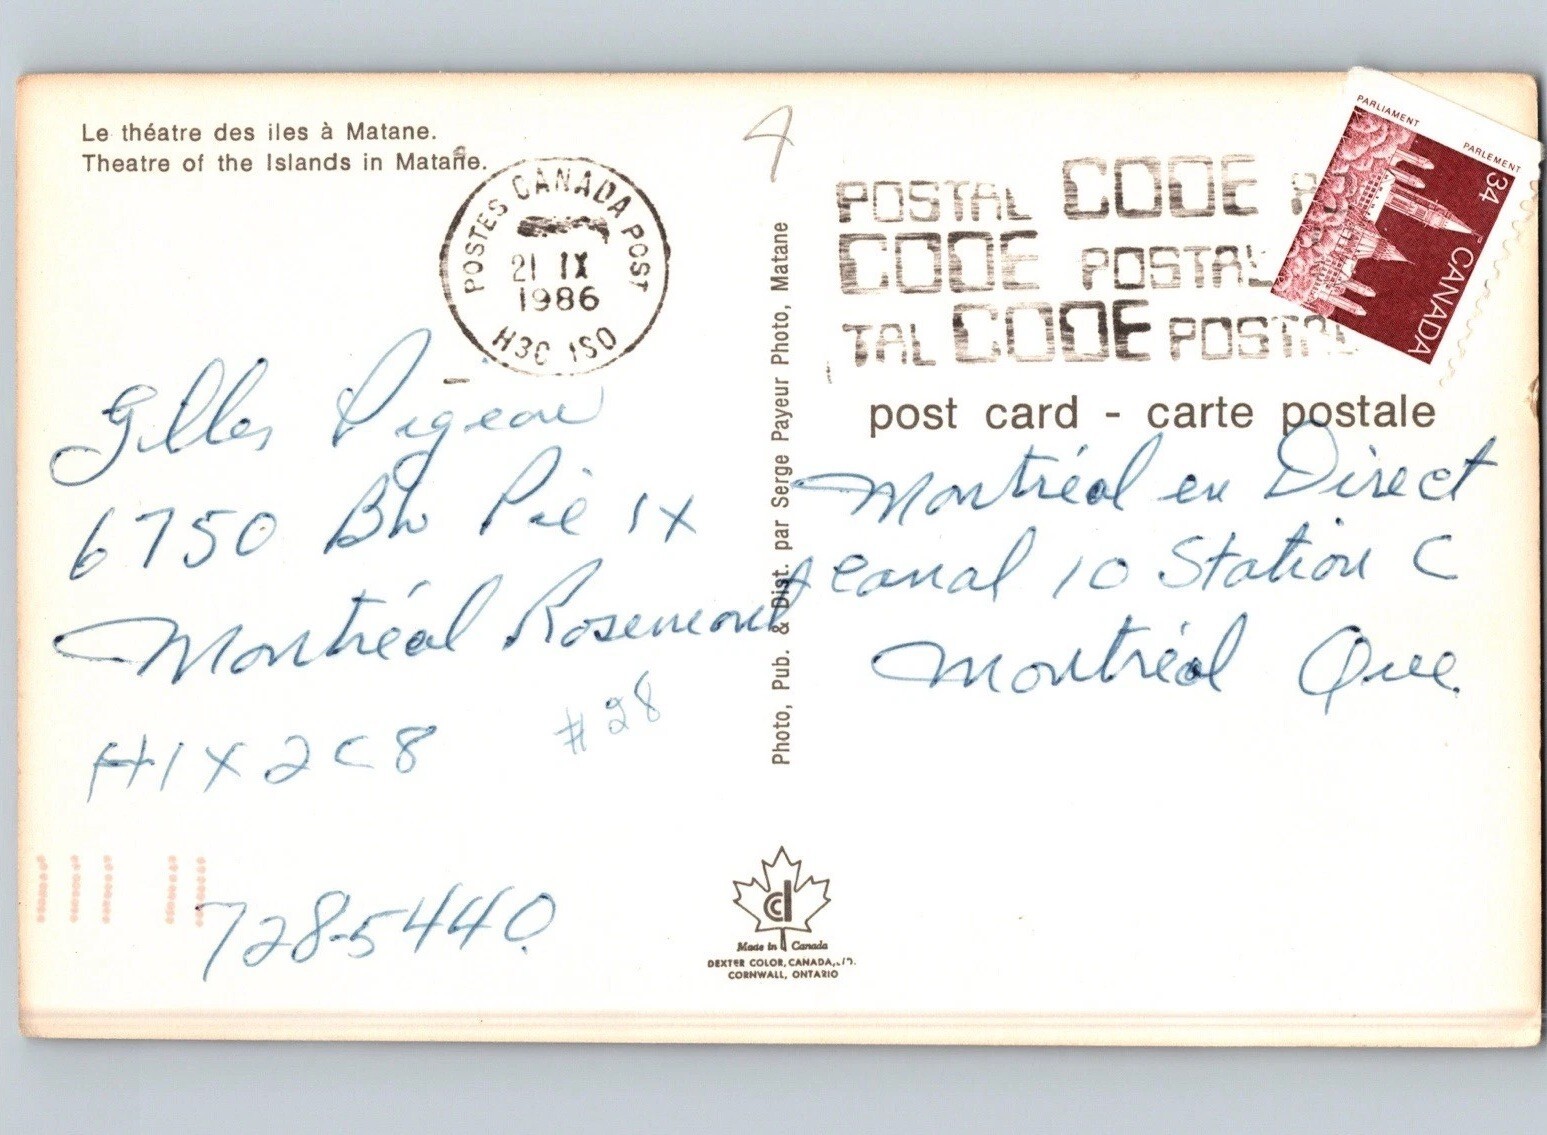 Le théatre des iles à Matane.
Theatre of the Islands in Matane.
POSTES CANADA POST
21 IX
1986
H3C 1S0
4
POSTAL CODE P
CODE POSTAL
TAL CODE POSTAL
PARLIAMENT
PARLEMENT
34
CANADA
post card - carte postale
Gilles Pigeon
6750 Bw Pie IX
Montréal Rosemont
H1X2C8
#28
728-5440
Photo, Pub. & Dist. par Serge Payeur Photo, Matane
Montréal en Direct
Canal 10 Station C
Montréal Que.
cd
Made in Canada
DEXTER COLOR, CANADA, LTD.
CORNWALL, ONTARIO